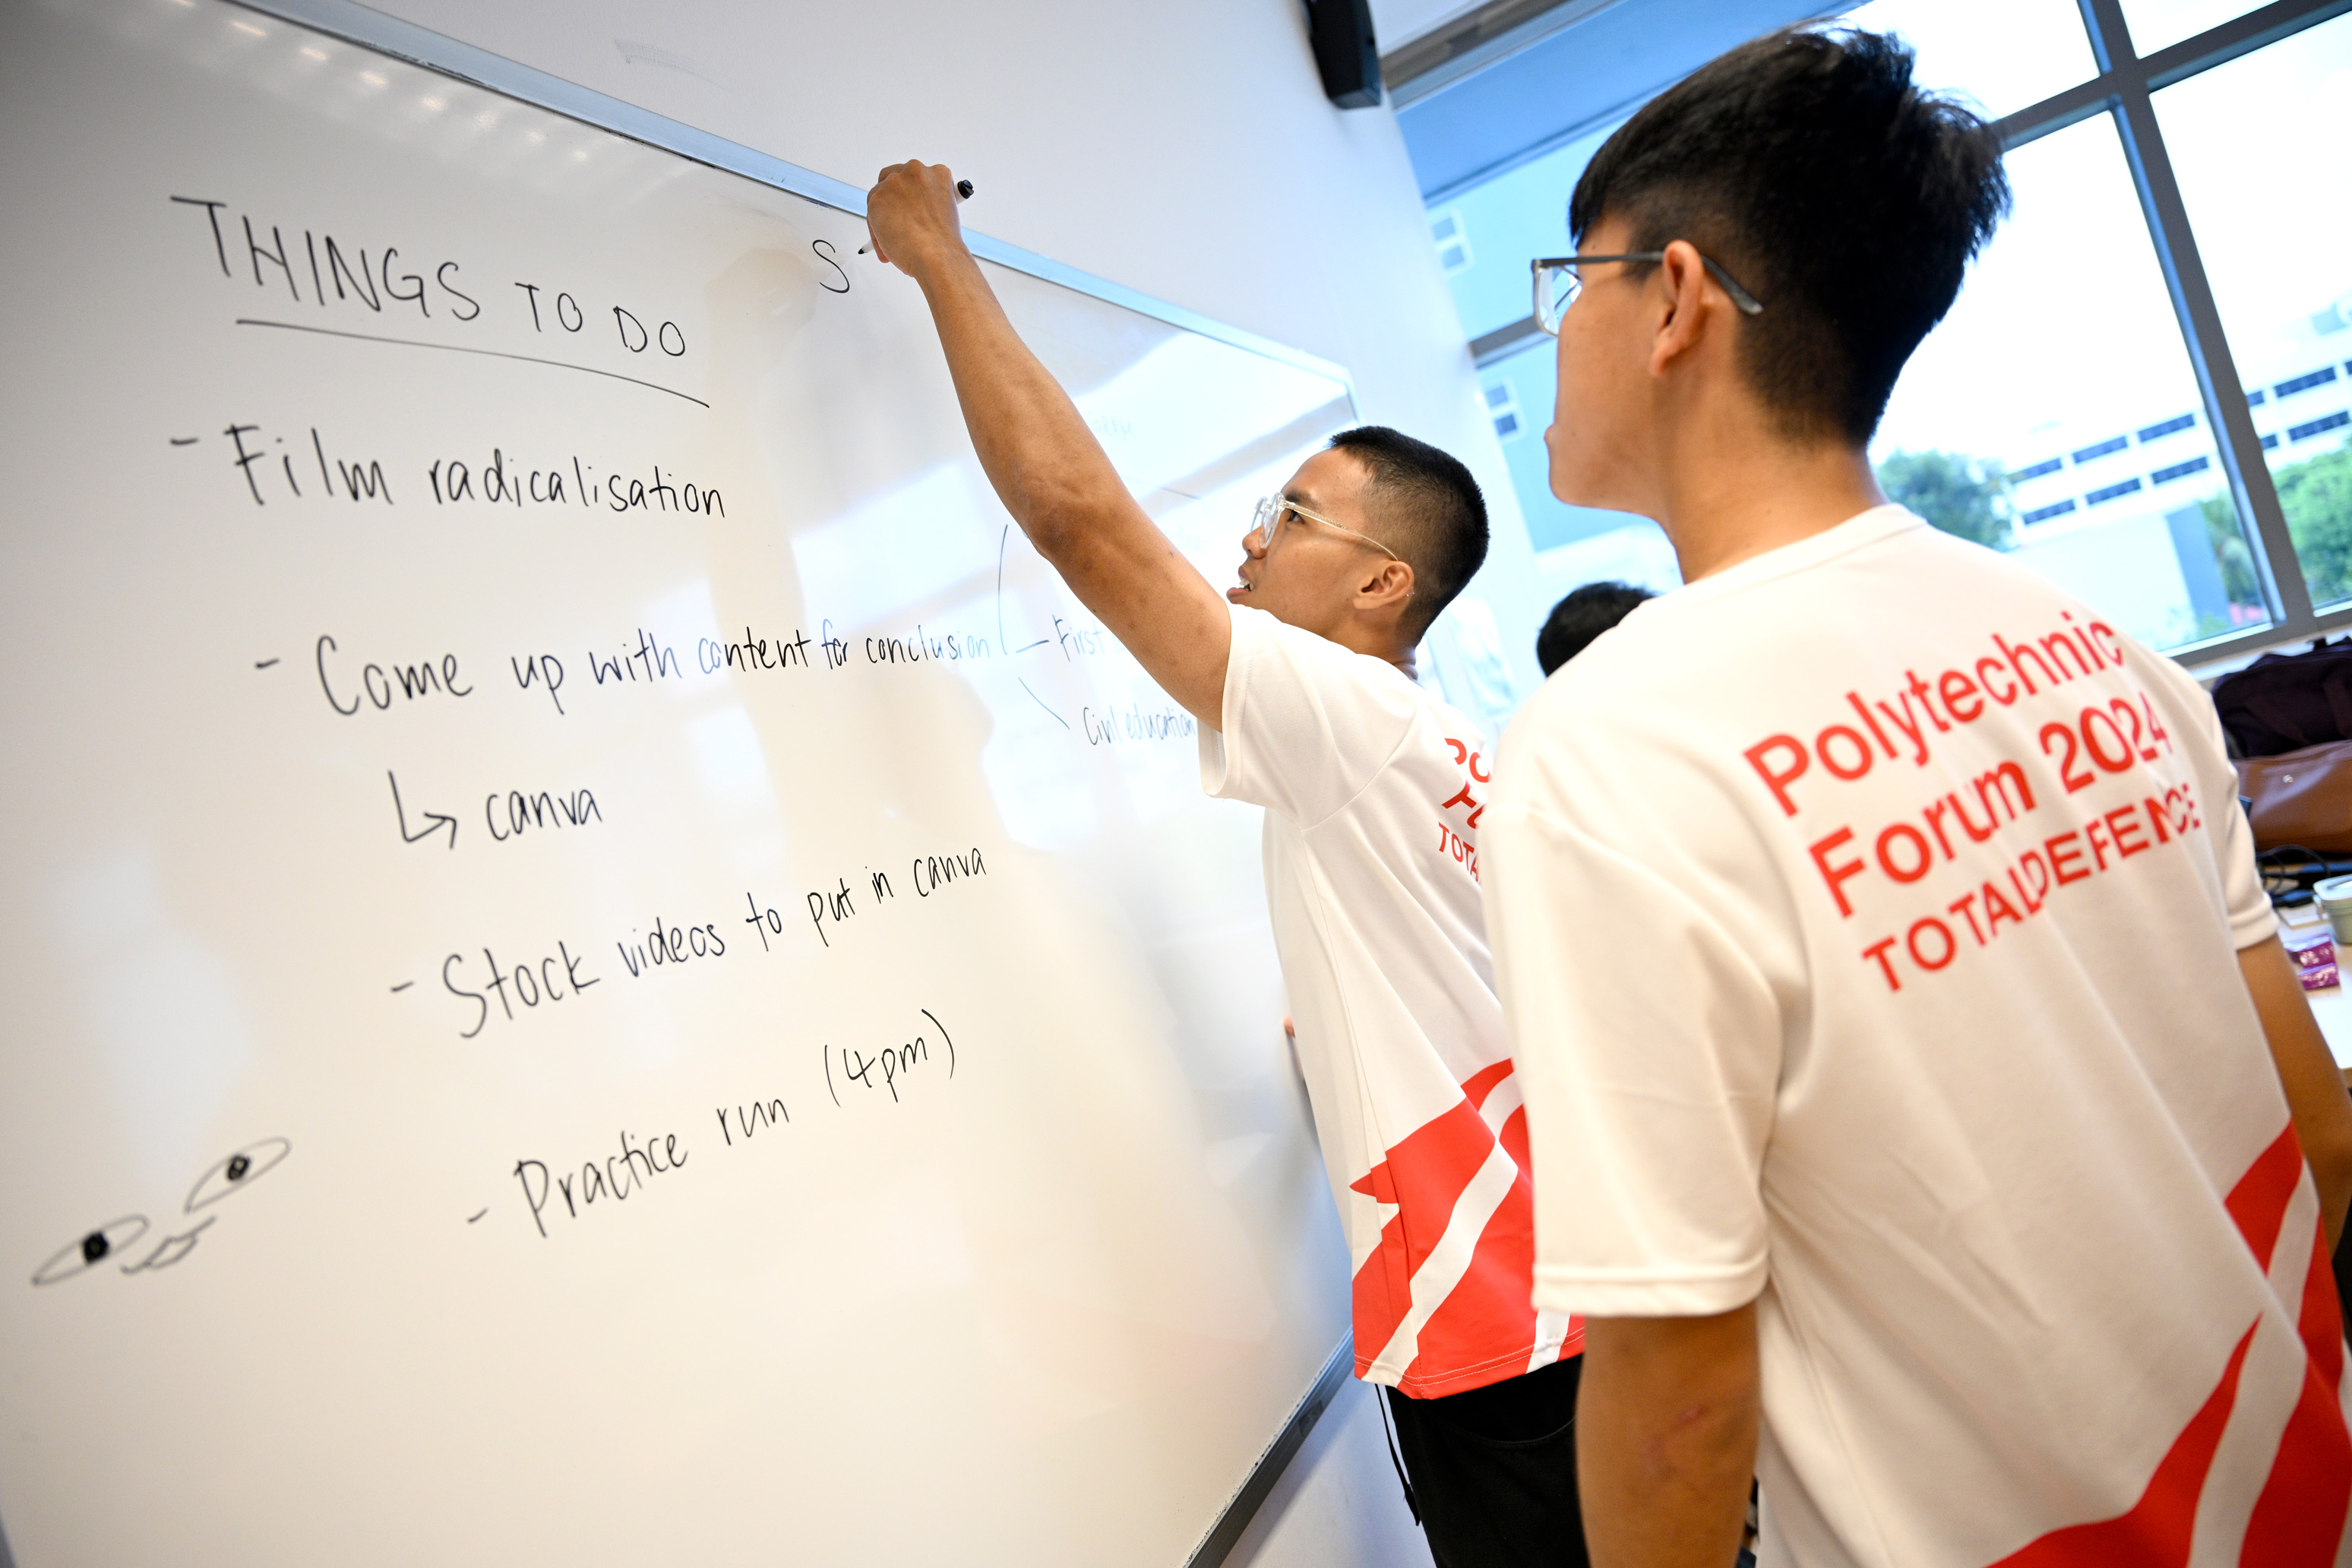 THINGS TO DO
S
- Film radicalisation
- Come up with content for conclusion
- First
Civil education
↳ canva
- Stock videos to put in canva
- Practice run (4pm)
Polytechnic
Forum 2024
TOTALDEFENCE